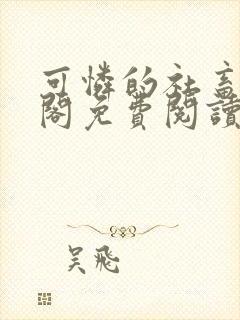 可憐的社畜
閣免費閱讀
吳飛